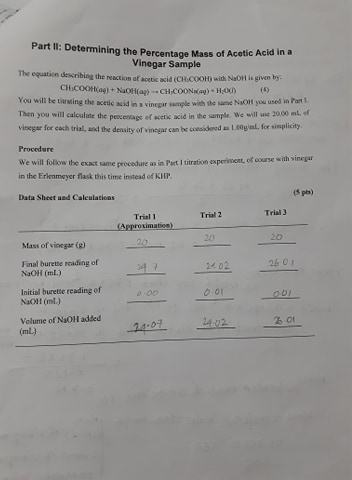 Part II: Determining the Percentage Mass of Acetic Acid in a
Vinegar Sample
The equation describing the reaction of acetic acid (CH₃COOH) with NaOH is given by:
CH₃COOH(aq) + NaOH(aq) → CH₃COONa(aq) + H₂O(l) (4)
You will be titrating the acetic acid in a vinegar sample with the same NaOH you used in Part I.
Then you will calculate the percentage of acetic acid in the sample. We will use 20.00 mL of
vinegar for each trial, and the density of vinegar can be considered as 1.00g/mL for simplicity.
Procedure
We will follow the exact same procedure as in Part I titration experiment, of course with vinegar
in the Erlenmeyer flask this time instead of KHP.
Data Sheet and Calculations (5 pts)
Trial 1 Trial 2 Trial 3
(Approximation)
Mass of vinegar (g) 20 20 20
Final burette reading of
NaOH (mL) 24.02 26.01
Initial burette reading of
NaOH (mL) 0.00 0.01 0.01
Volume of NaOH added
(mL) 24.02 26.01